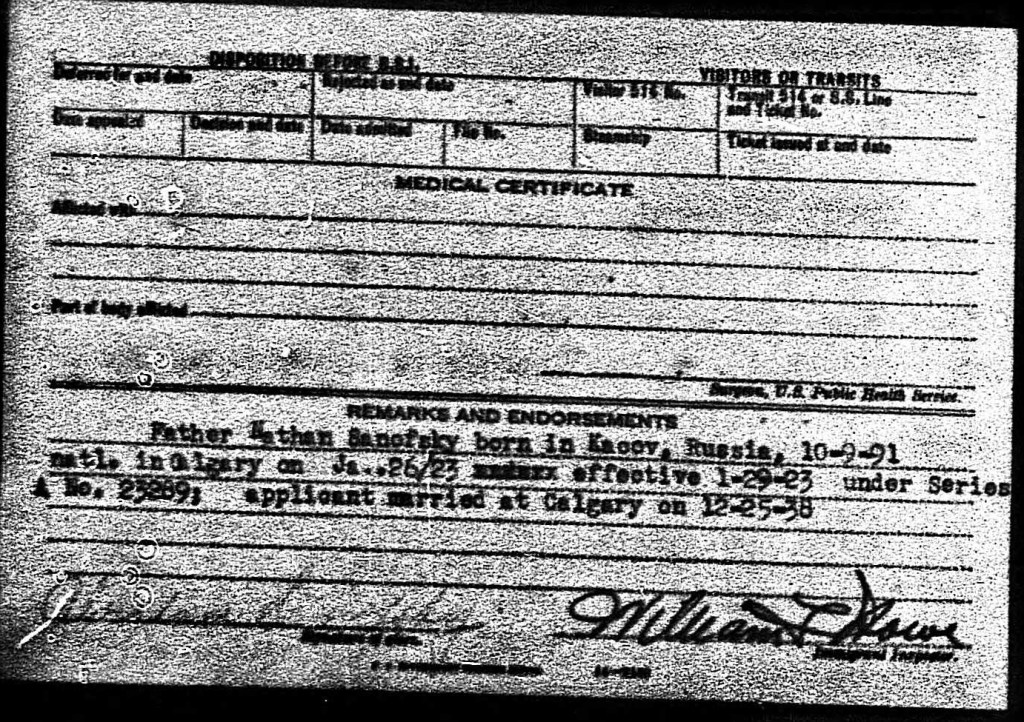 DISPOSITION BEFORE B.S.I.
VISITORS OR TRANSITS
Deferred for and date
Rejected as and date
Visitor 514 No.
Transit 514 or S.S. Line
and Ticket No.
Date appealed
Decision and date
Date admitted
File No.
Steamship
Ticket issued at and date
MEDICAL CERTIFICATE
Afflicted with
Part of body afflicted
Surgeon, U.S. Public Health Service.
REMARKS AND ENDORSEMENTS
Father Nathan Sanofsky born in Kacov, Russia, 10-9-91
natl. in Calgary on Ja..26/23 effective 1-29-23 under Series
A No. 23269; applicant married at Calgary on 12-25-38
William Howe
Immigrant Inspector.